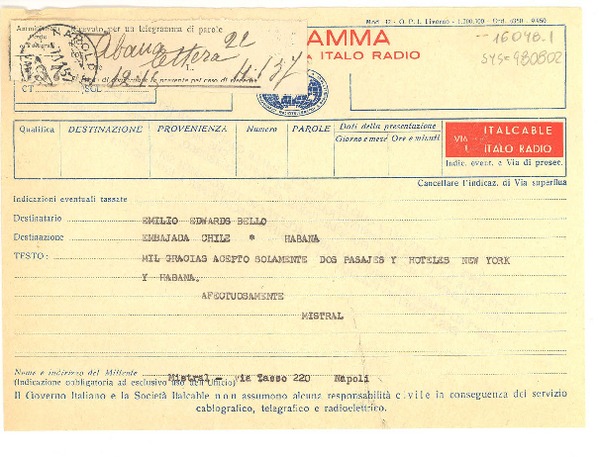 Mod. 12 - O. P. I. Livorno - 1.200.100 - Ord. 6350 - 9550
cevuto per un telegramma di parole
Abana 22
lettera
presente nel caso di
NAPOLI
AMMA
A ITALO RADIO
16048.1
SYS=980802
CT
Qualifica DESTINAZIONE PROVENIENZA Numero PAROLE Dati della presentazione
Giorno e mese Ore e minuti
VIA ITALCABLE
ITALO RADIO
Indic. event. e Via di prosec.
Cancellare l'indicaz. di Via superflua
Indicazioni eventuali tassate
Destinatario EMILIO EDWARDS BELLO
Destinazione EMBAJADA CHILE * HABANA
TESTO: MIL GRACIAS ACEPTO SOLAMENTE DOS PASAJES Y HOTELES NEW YORK
Y HABANA.
AFECTUOSAMENTE
MISTRAL
Nome e indirizzo del Mittente
Mistral - via Tasso 220 Napoli
(Indicazione obbligatoria ad esclusivo uso dell'Ufficio)
Il Governo Italiano e la Società Italcable non assumono alcuna responsabilità civile in conseguenza del servizio
cablografico, telegrafico e radioelettrico.